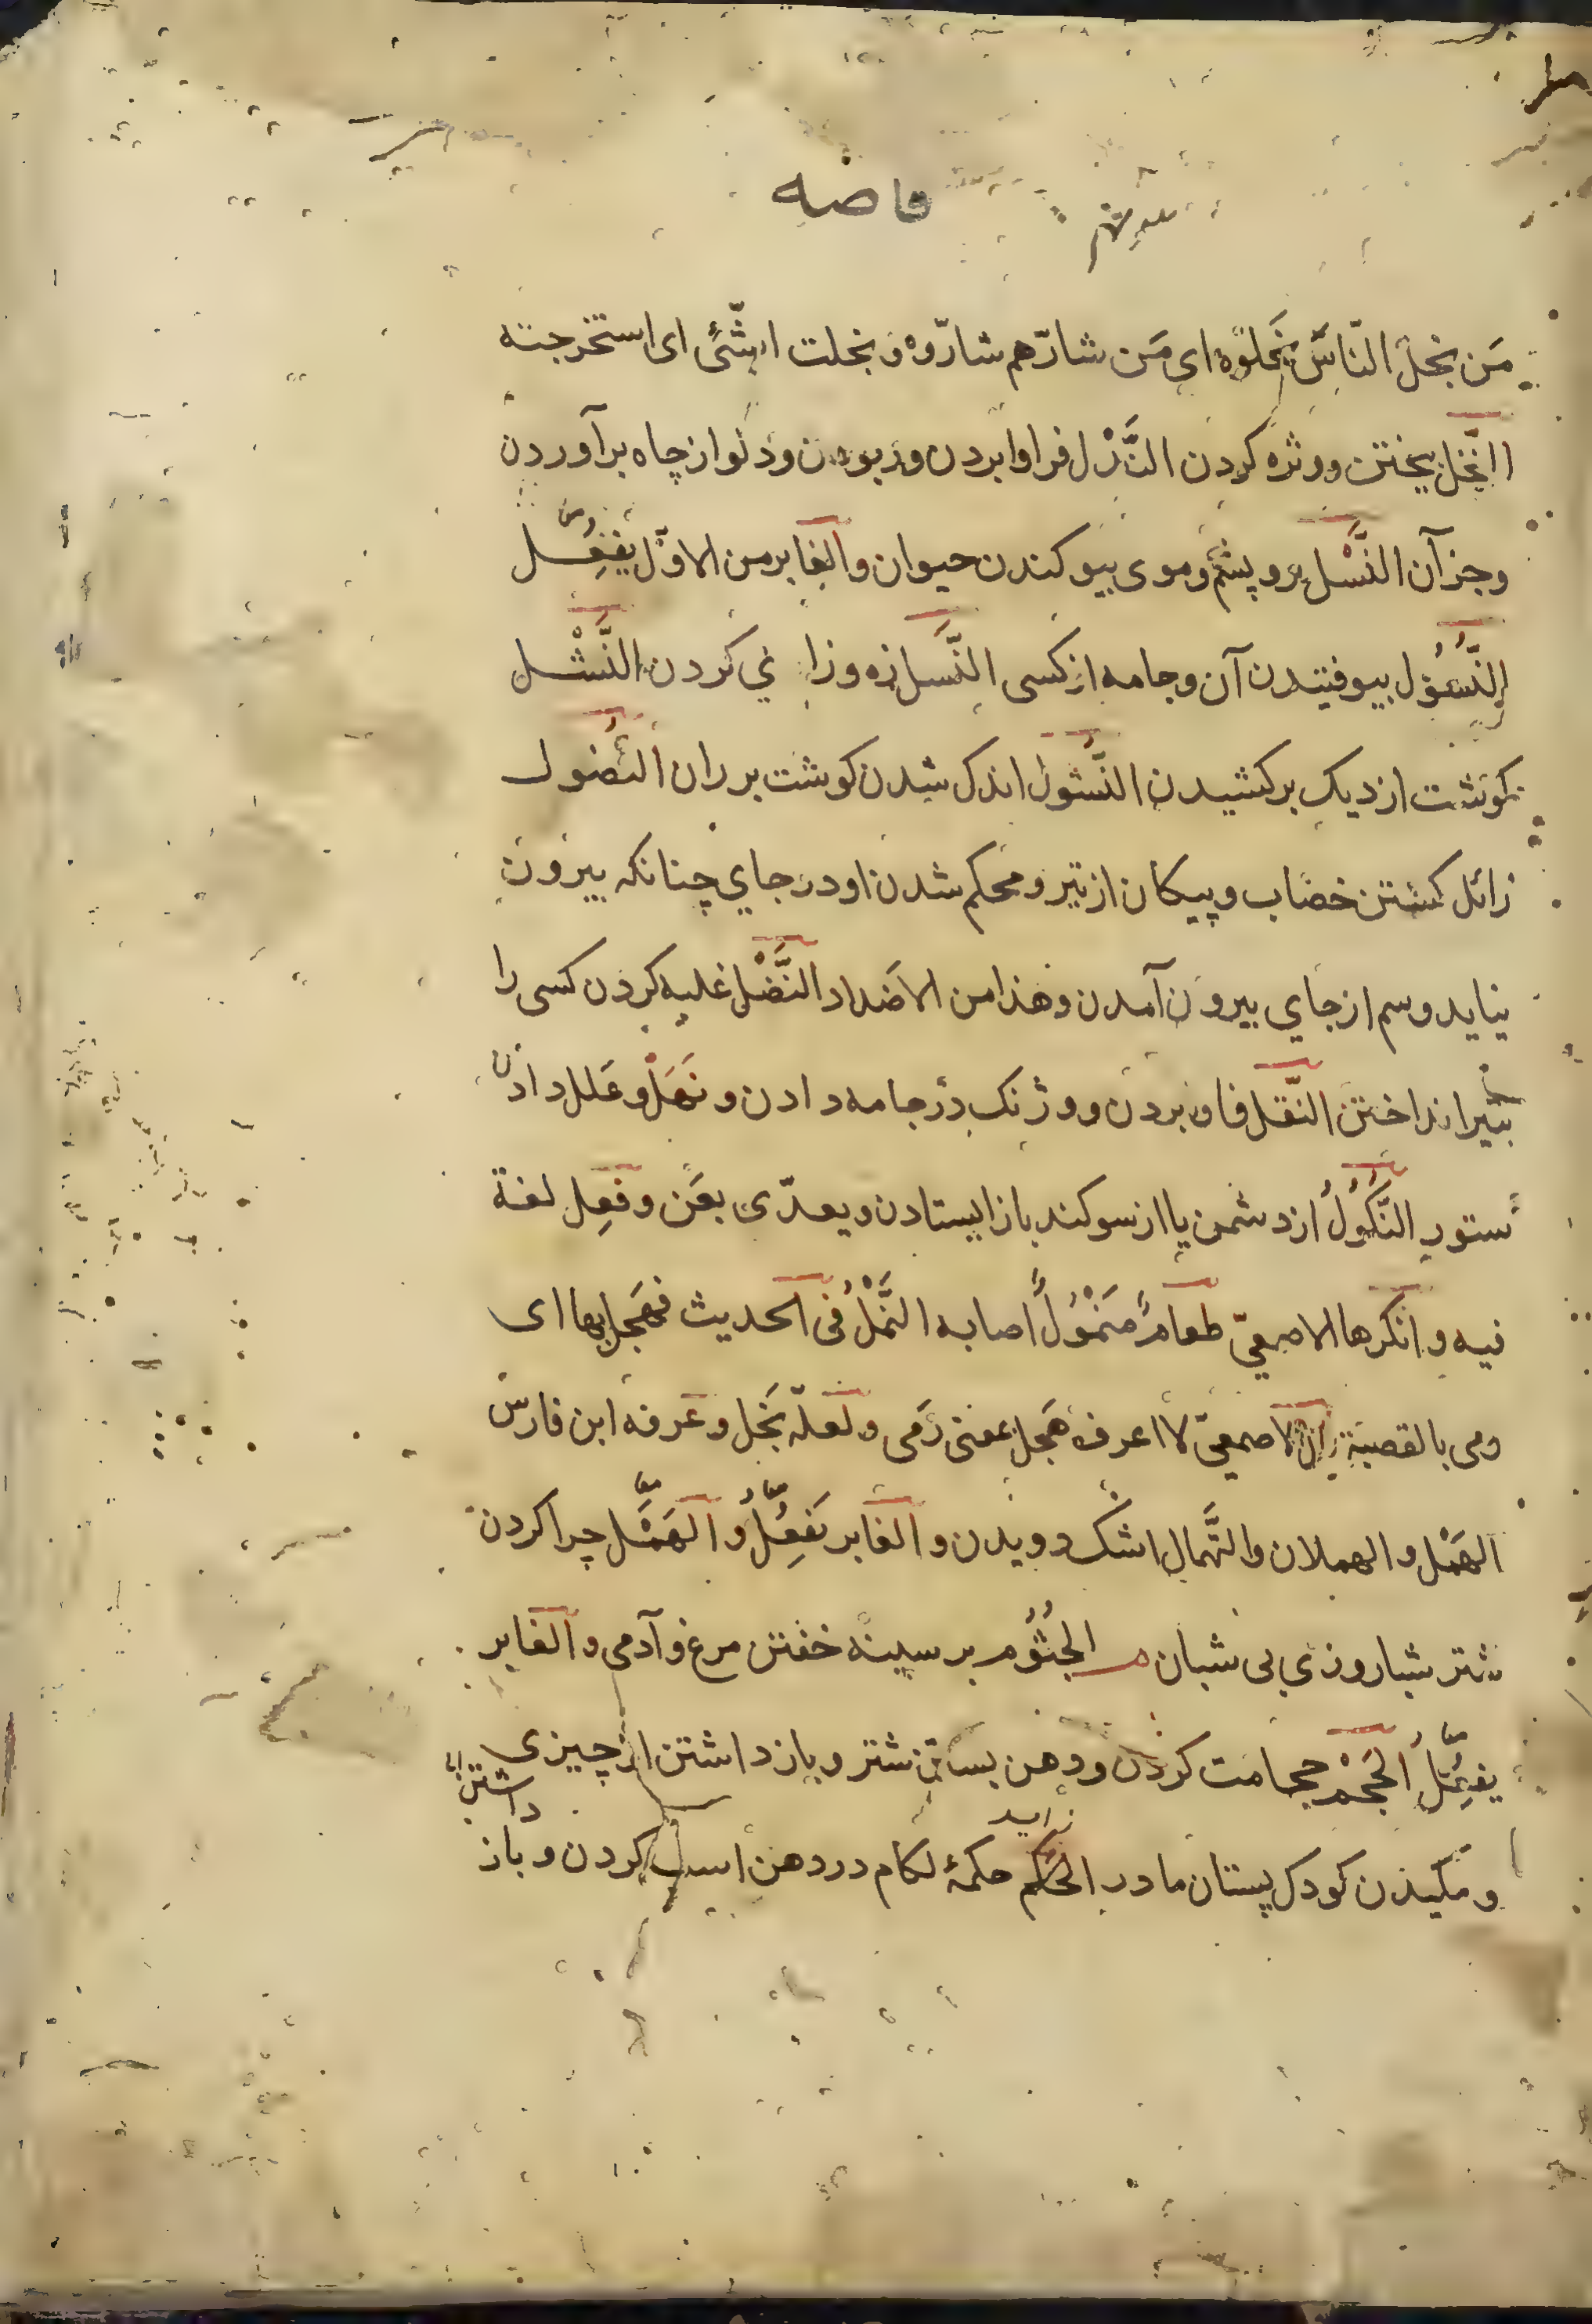 مَن نجل النّاسَ نجَلوُه ای مَن شارّهم شارّوه و نجلت الشّئَ ای استخرجته
النَّخل بیختن و ویژه کردن النَّزْل فراوا بردن و ربودن و دلو از چاه برآوردن
و جز آن النَّسْل پر و پشم و موی بیوکندن حیوان و الغابر من الاوّل یفعُِل
النُّسُوْل بیوفتیدن آن و جامه از کسی النَّسل زه و زا ئی کردن النَّشْل
کوشت از دیک برکشیدن النُّشول اندک شدن کوشت بر ران النُّضول
زائل کشتن خضاب و پیکان از تیر و محکم شدن او در جای چنانکه بیرون
نیاید و سم از جای بیرون آمدن و هذا من الاضداد النَّضْل غلبه کردن کسی را
بتیر انداختن النَّقل فا بردن و و ژنک در جامه دادن و نهَل و عَلل دادن
ستور النُّکُوْلُ از دشمن یا از سوکند باز ایستادن و یعدّی بعَن و فعِل لغة
فیه و انکرها الاصمعیّ طعامٌ مَنْمُوْلٌ اصابه النَّمْلُ فی الحدیث فهَجل بها ای
رمی بالقصبة الاصمعیّ لا اعرف هَجل بمعنی رَمی و لعلّه نجَل و عرفه ابن فارس
الهَمْل و الهملان و التَّهمال اشک دویدن و الغابر یَفعُِلُ و الهَمَْل چرا کردن
شتر شباروزی بی شبان م الجُثُوْم بر سینه خفتن مرغ و آدمی و الغابر
یفعُِل الحَجْم حجامت کردن و دهن بستن شتر و باز داشتن از چیزی
و مکیذن کودک پستان مادر الحَکْم حکمهٔ لکام در دهن اسب کردن و باز
داشتن